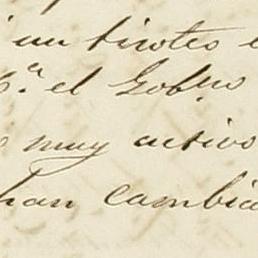 un tirotes
el Gobno
muy activo
han cambia